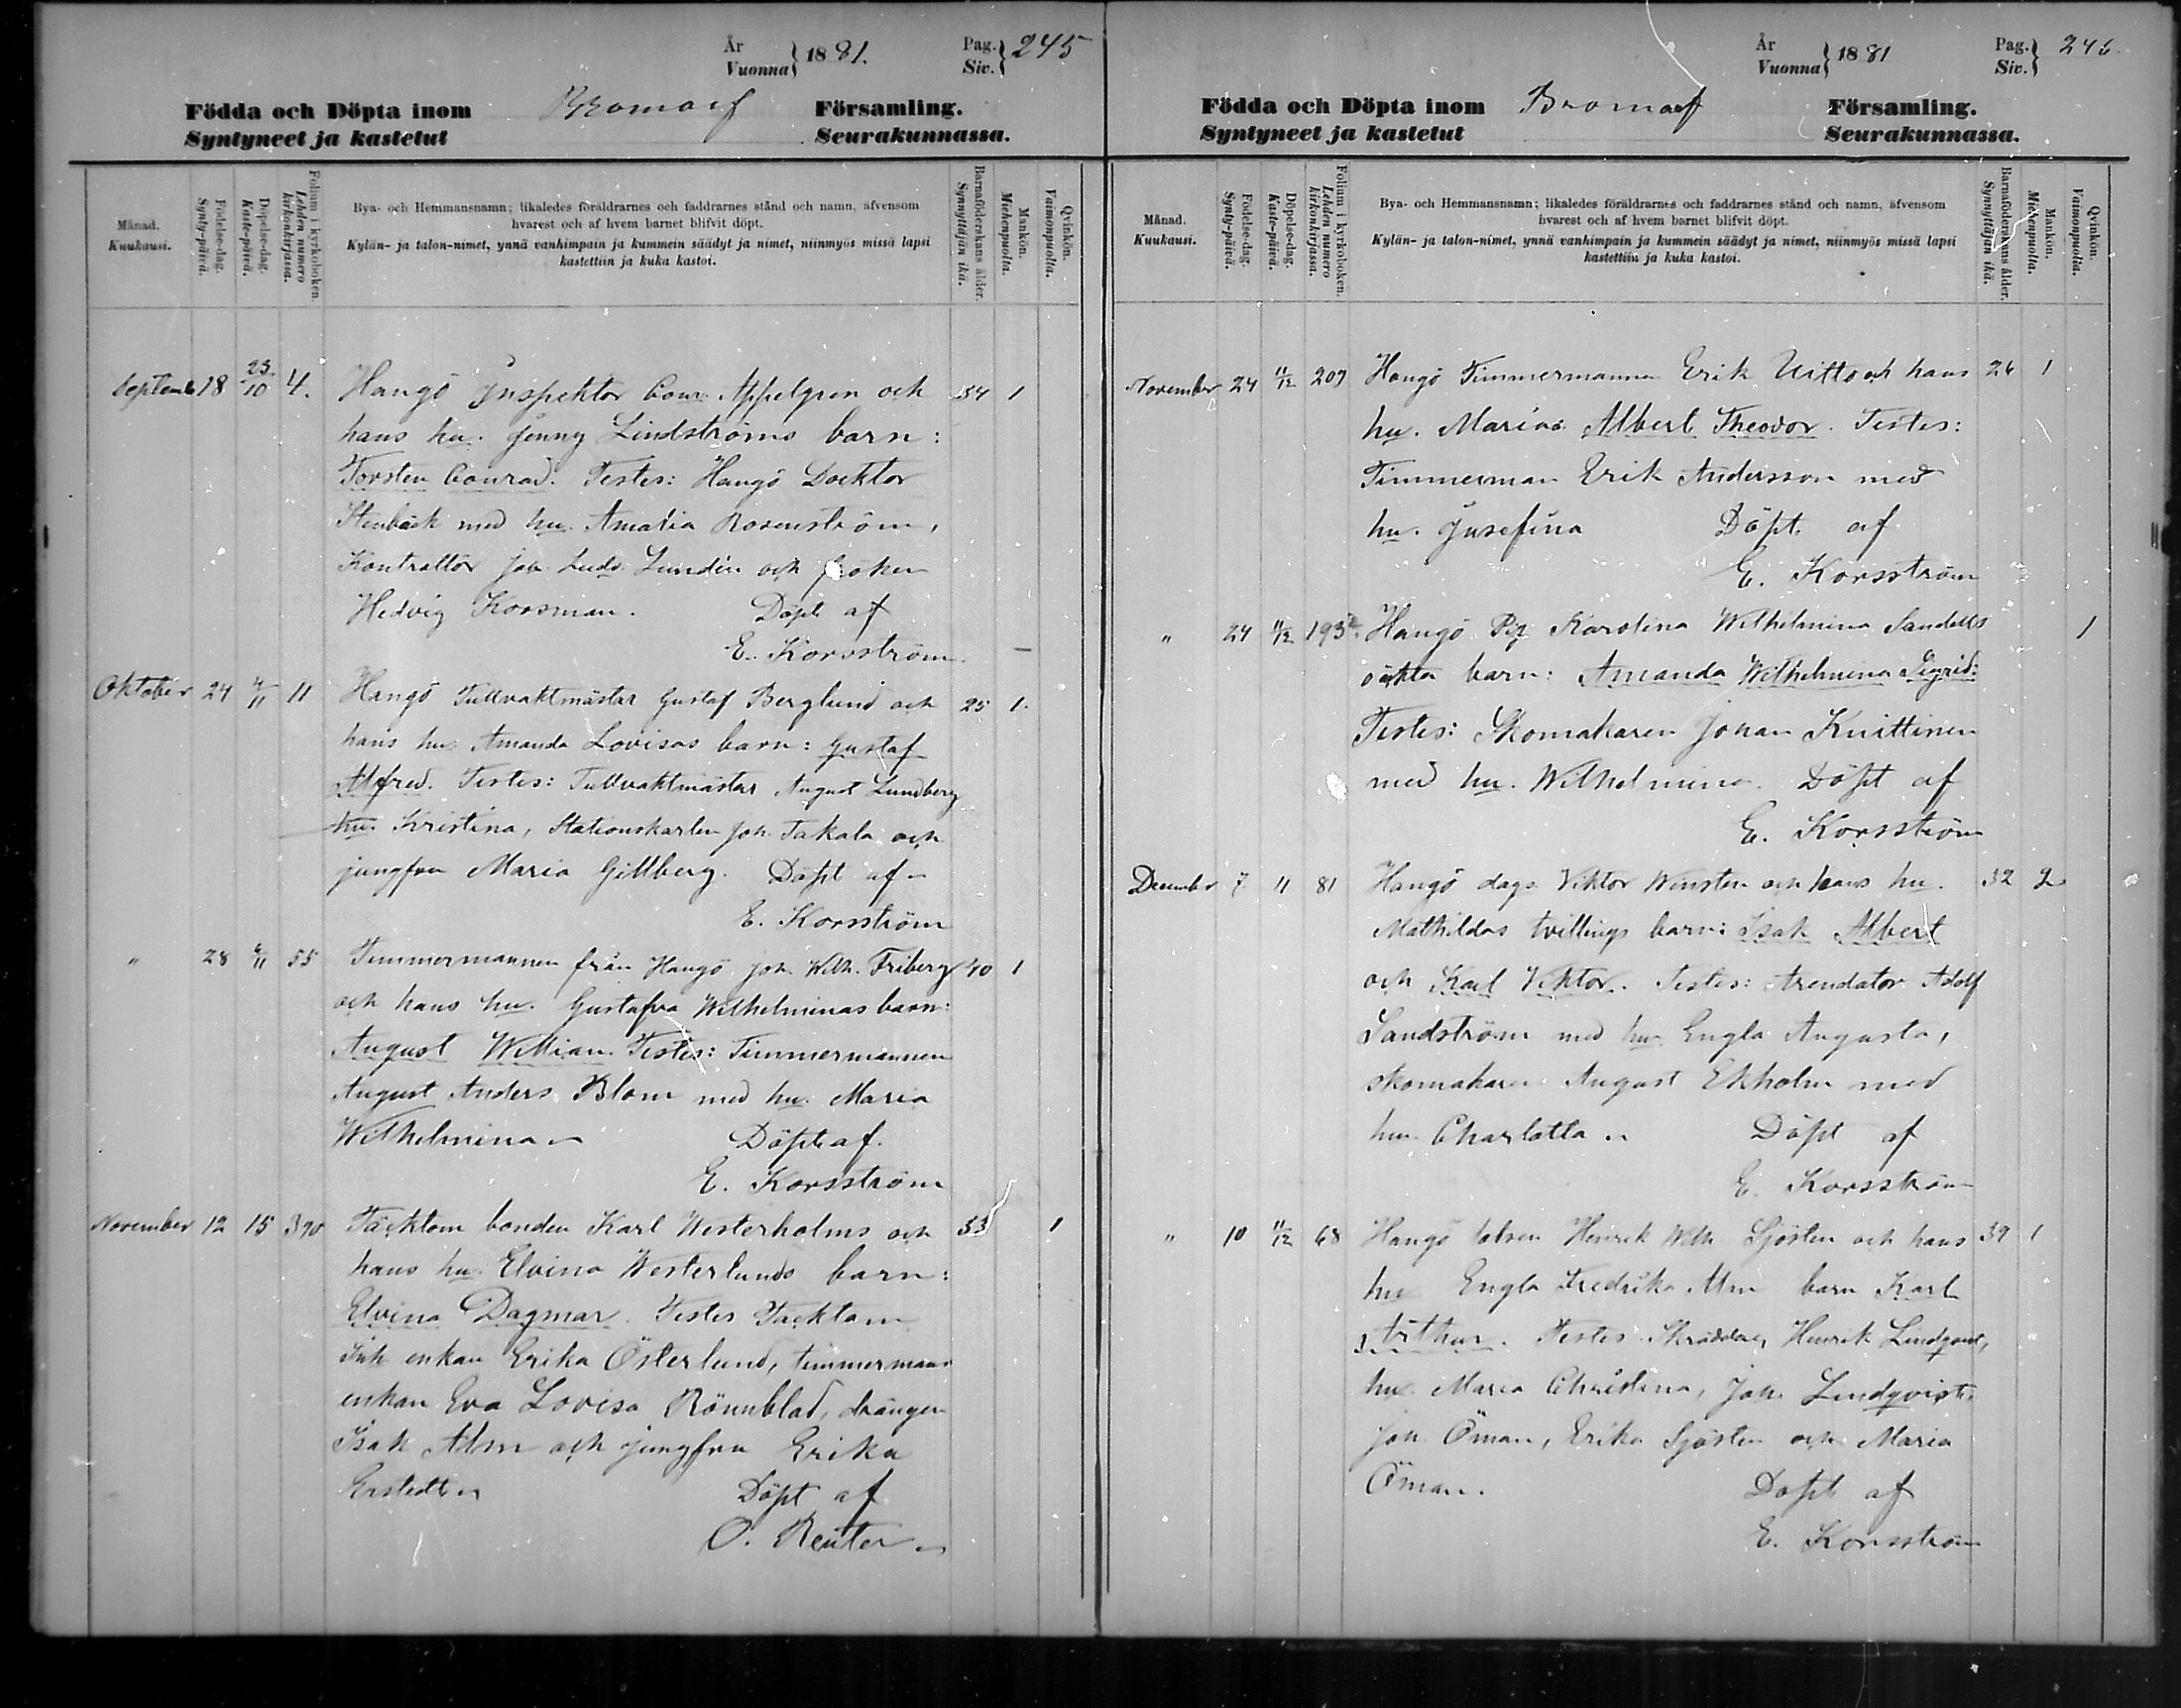 År
Vuonna } 1881.
Pag.
Siv. } 245
Födda och Döpta inom Bromarf Församling.
Syntyneet ja kastetut Seurakunnassa.
Månad.
Kuukausi.
Födelse-dag.
Synty-päivä.
Döpelse-dag.
Kaste-päivä.
Folium i kyrkoboken.
Lehden numero kirkonkirjassa.
Bya- och Hemmansnamn; likaledes föräldrarnes och faddrarnes stånd och namn, äfvensom
hvarest och af hvem barnet blifvit döpt.
Kylän- ja talon-nimet, ynnä vanhimpain ja kummein säädyt ja nimet, niinmyös missä lapsi
kastettiin ja kuka kastoi.
Barnaföderskans ålder.
Synnyttäjän ikä.
Mankön.
Miehenpuolta.
Qvinkön.
Vaimonpuolta.
Septemb 18 23/10 4. Hangö Inspektor Conr. Appelgren och 34 1
hans hu. Jenny Lindströms barn:
Torsten Conrad. Testes: Hangö Docktor
Stenbäck med hu. Amalia Rosenström,
Kontrallör Joh. Ludv. Lundin och fröken
Hedvig Korsman. Döpt af
E. Korsström
Oktober 24 4/11 11 Hangö Tullvaktmästar Gustaf Berglund och 25 1.
hans hu. Amanda Lovisas barn: Gustaf
Alfred. Testes: Tullvaktmästar August Lundberg
hu. Kristina, Stationskarlen Joh. Takala och
jungfru Maria Gillberg. Döpt af
E. Korsström
" 28 4/11 55 Timmermannen från Hangö Joh. Wilh. Friberg 40 1
och hans hu. Gustafva Wilhelminas barn:
August William. Testes: Timmermannen
August Anders Blom med hu. Maria
Wilhelmina Döpt af.
E. Korsström
November 12 15 390 Täcktom bonden Karl Westerholms och 33 1
hans hu. Elvina Westerlunds barn:
Elvina Dagmar. Testes Täcktom
Inh enkan Erika Österlund, timmermans
enkan Eva Lovisa Rönnblad, drängen
Isak Alm och jungfru Erika
Erstedt Döpt af
O. Reuter
År
Vuonna } 1881
Pag.
Siv. } 246.
Födda och Döpta inom Bromarf Församling.
Syntyneet ja kastetut Seurakunnassa.
Månad.
Kuukausi.
Födelse-dag.
Synty-päivä.
Döpelse-dag.
Kaste-päivä.
Folium i kyrkoboken.
Lehden numero kirkonkirjassa.
Bya- och Hemmansnamn; likaledes föräldrarnes och faddrarnes stånd och namn, äfvensom
hvarest och af hvem barnet blifvit döpt.
Kylän- ja talon-nimet, ynnä vanhimpain ja kummein säädyt ja nimet, niinmyös missä lapsi
kastettiin ja kuka kastoi.
Barnaföderskans ålder.
Synnyttäjän ikä.
Mankön.
Miehenpuolta.
Qvinkön.
Vaimonpuolia.
November 24 11/12 209 Hangö Timmermannen Erik Uitto och hans 26 1
hu. Marias Albert Theodor. Testes:
Timmerman Erik Andersson med
hu. Josefina Döpt af
E. Korsström
" 24 11/12 193 Hangö Pig Karolina Wilhelmina Sandells 1
oäkta barn: Amanda Wilhelmina Sigrid:
Testes: Skomakaren Johan Knittinen
med hu. Wilhelmina. Döpt af
E. Korsström
December 7 11 81 Hangö dags. Viktor Winsten och hans hu. 32 2
Mathildas tvillings barn: Isak Albert
och Karl Viktor. Testes: Arendator Adolf
Sandström med hu. Engla Augusta,
skomakaren August Ekholm med
hu. Charlotta Döpt af
E. Korsström
" 10 11/12 68 Hangö lotsen Henrik Wilh Sjösten och hans 39 1
hu Engla Fredrika Alm barn Karl
Arthur. Testes Skräddare Henrik Lindqvist,
hu. Maria Christina, Joh. Lindqvist,
Joh Öman, Erika Sjösten och Maria
Öman. Döpt af
E. Korsström